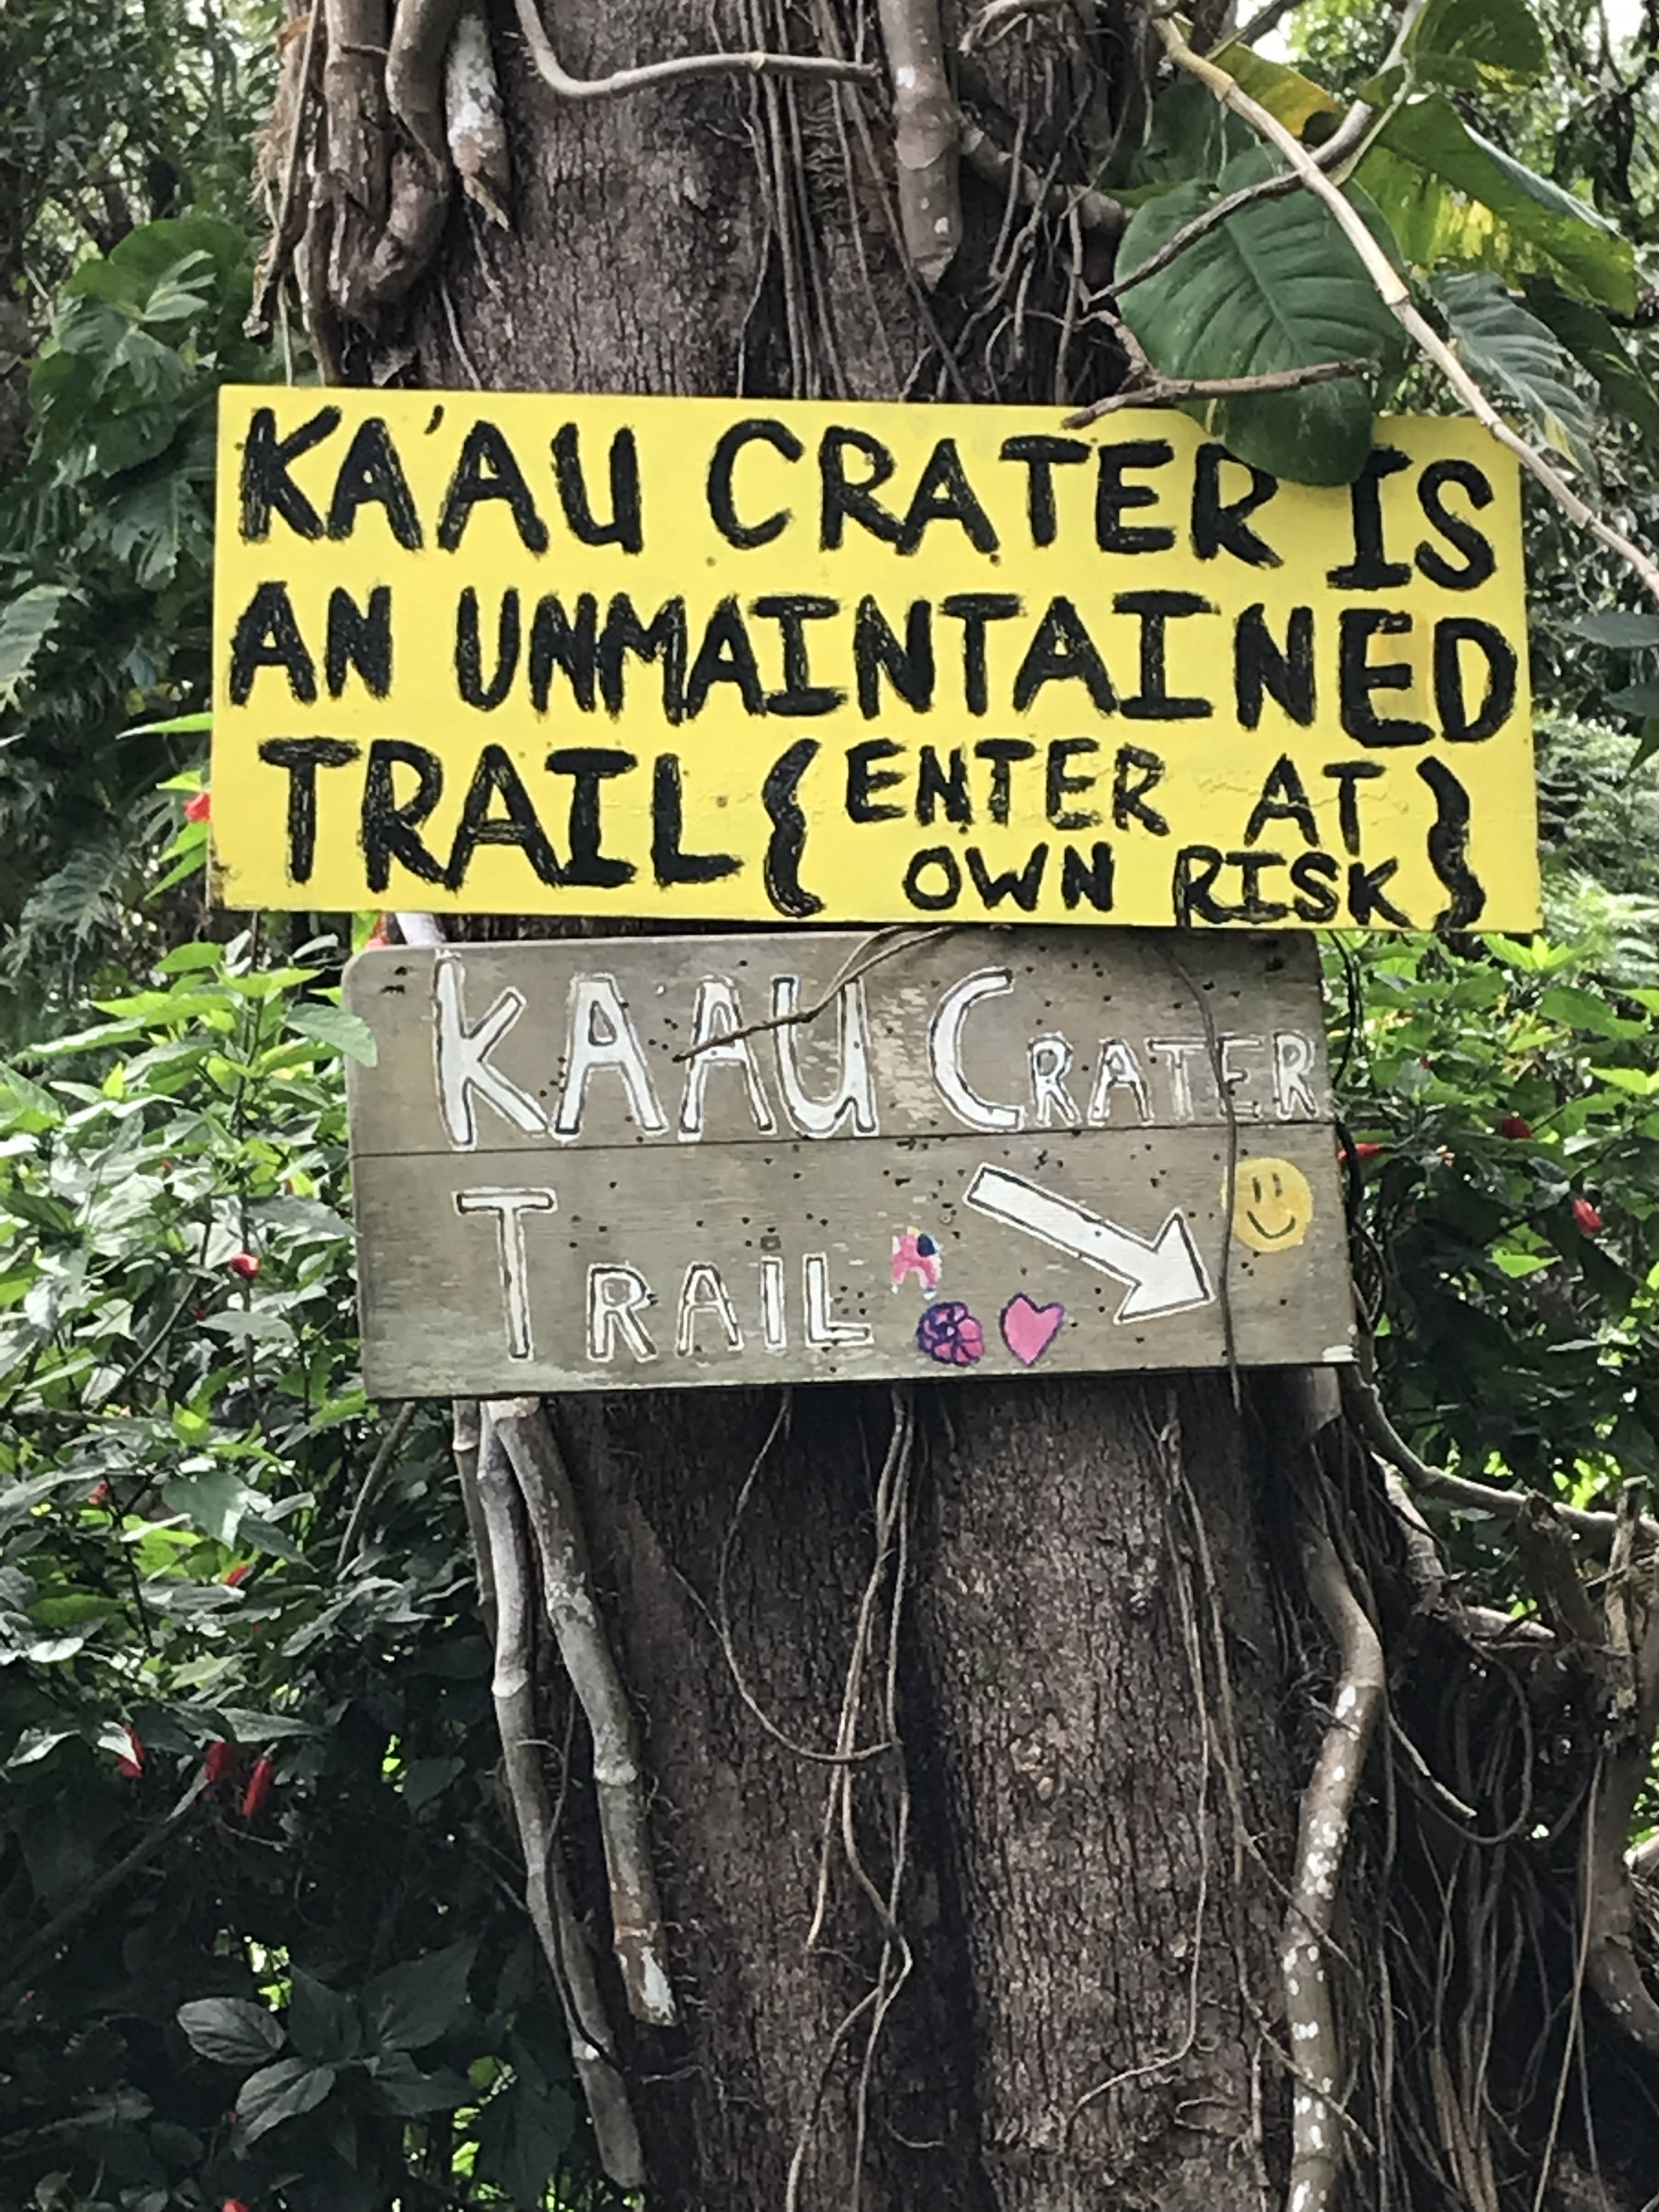 KA'AU CRATER IS
AN UNMAINTAINED
TRAIL { ENTER AT
OWN RISK }
KAAU CRATER
TRAIL